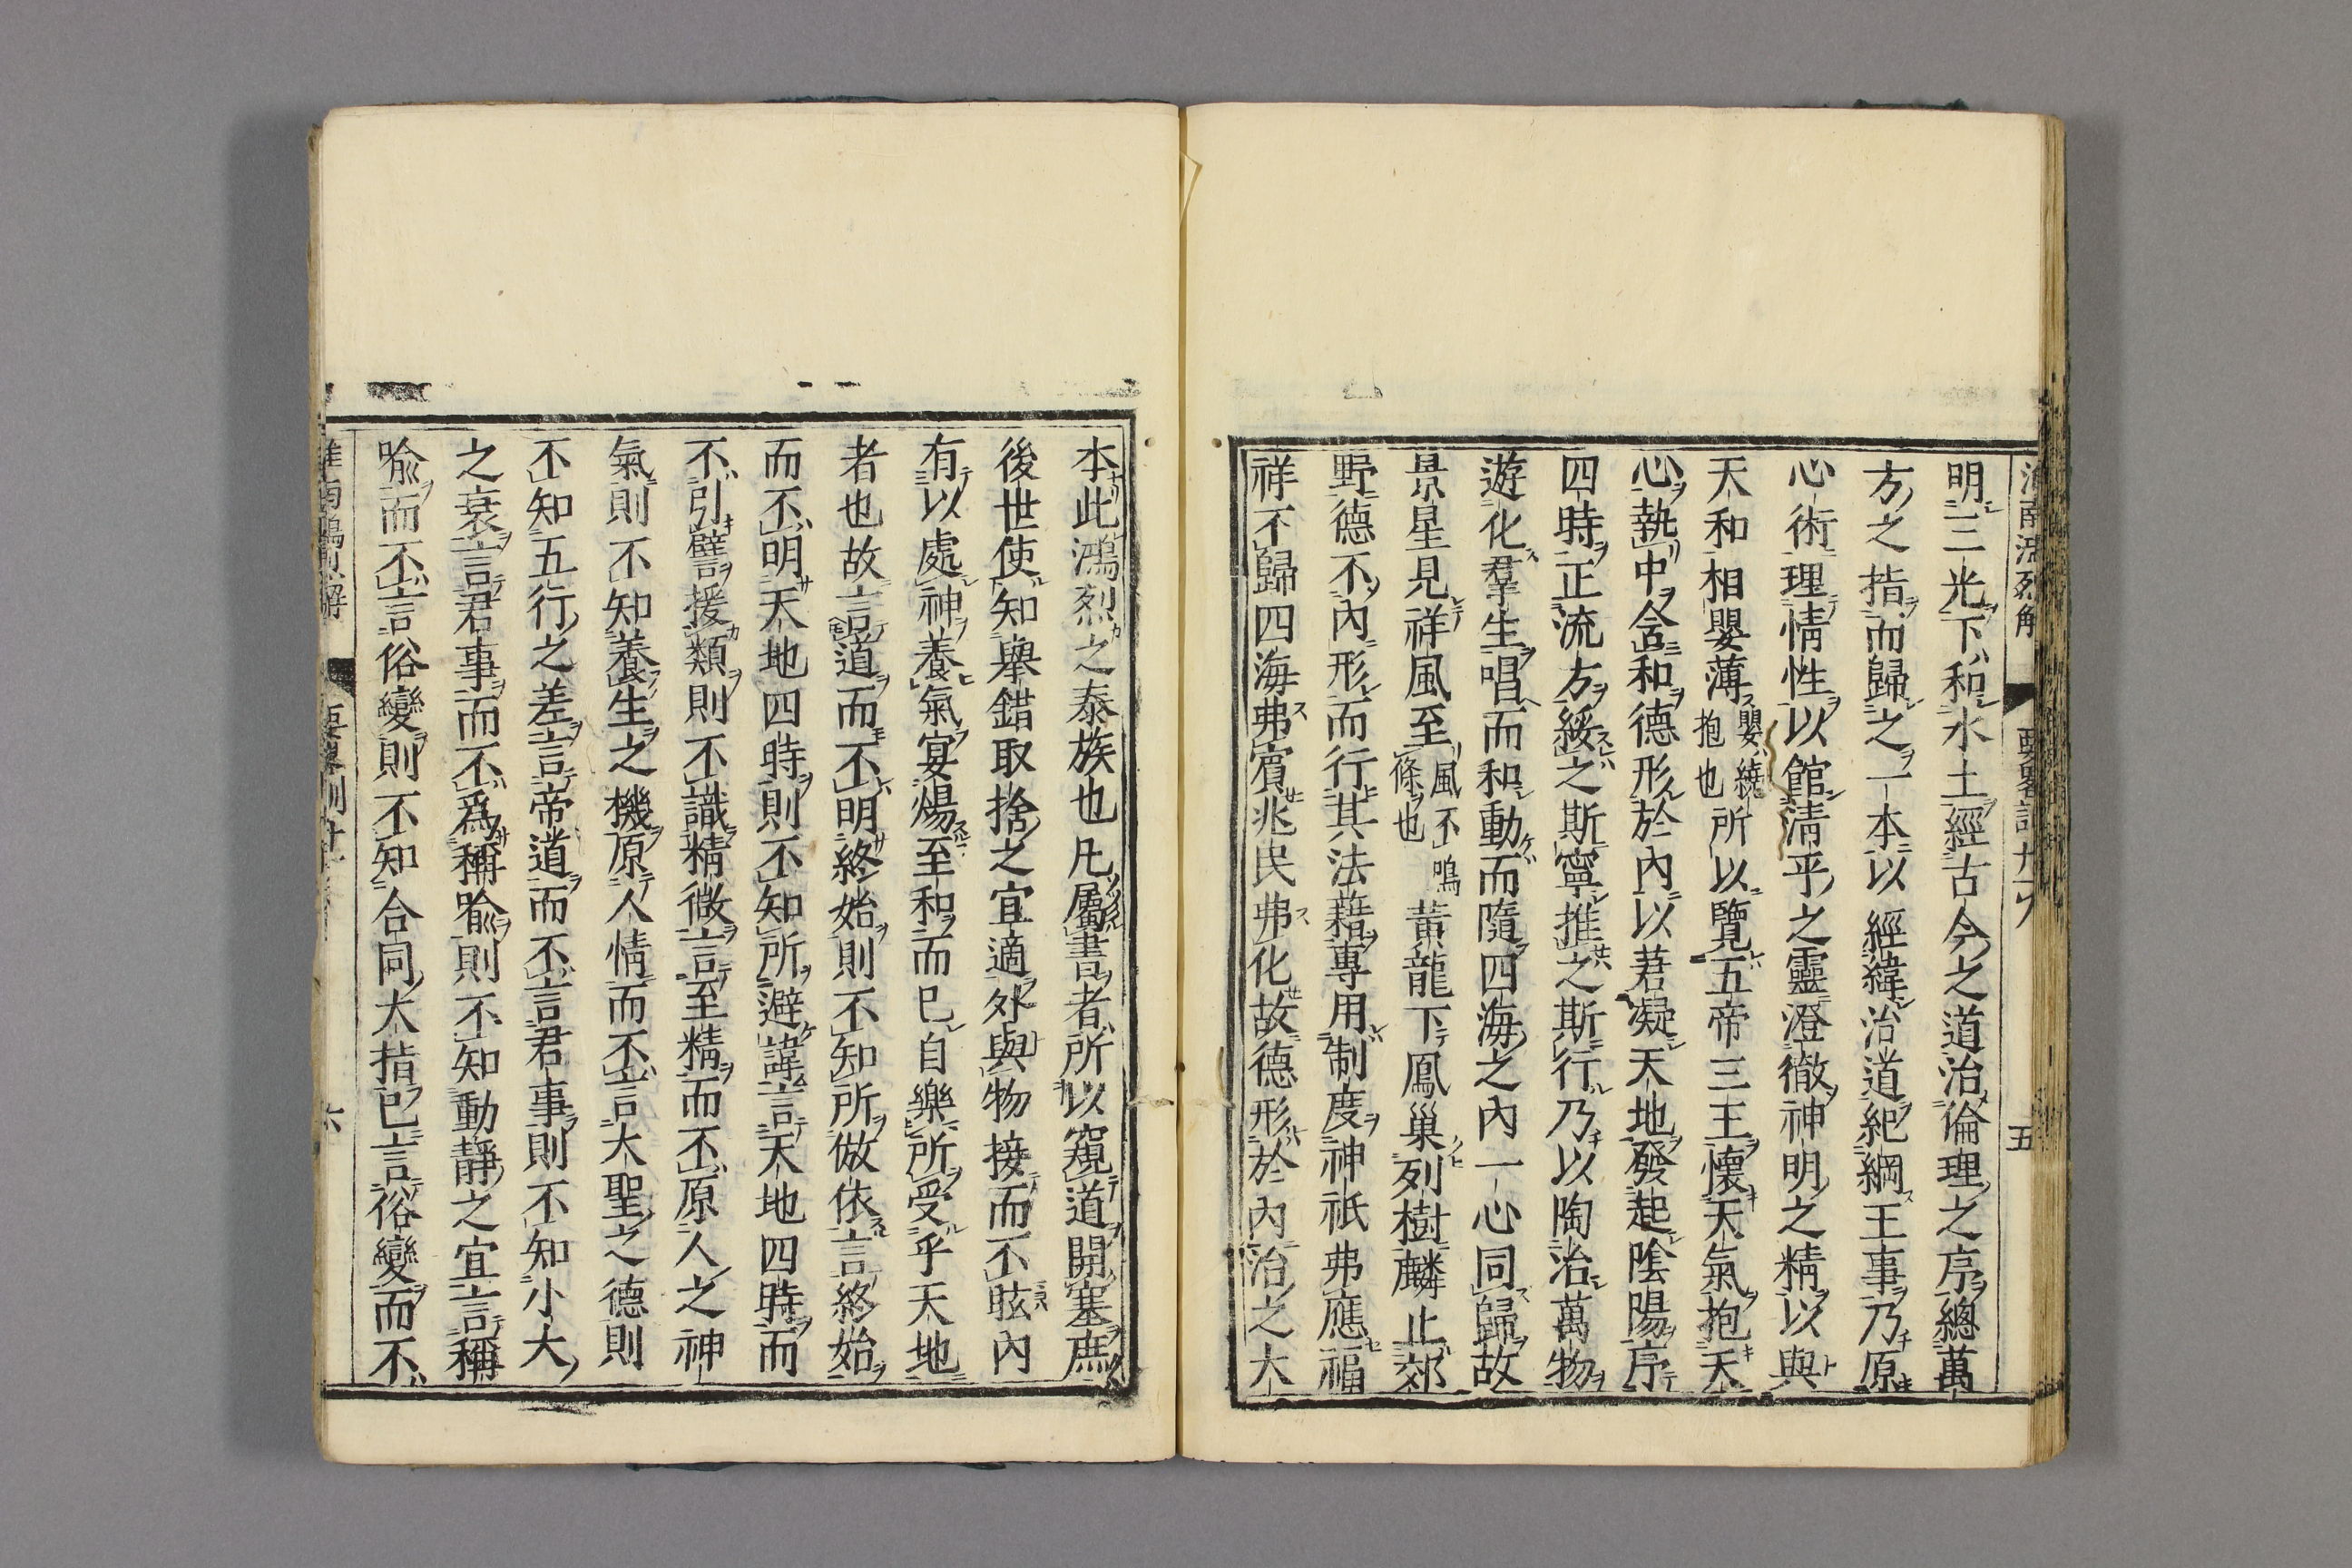 明三光下和水土經古今之道治倫理之序總萬
方之指而歸之一本以經緯治道紀綱王事乃原
心術理情性以館清平之靈澄徹神明之精以與
天和相嬰薄嬰繞抱也所以覽五帝三王懷天氣抱天
心執中含和德形於內以莙凝天地發起陰陽序
四時正流方綏之斯寧推之斯行乃以陶冶萬物
遊化羣生唱而和動而隨四海之內一心同歸故
景星見祥風至風不鳴條也黃龍下鳳巢列樹麟止郊
野德不內形而行其法藉專用制度神祇弗應福
祥不歸四海弗賓兆民弗化故德形於內治之大
本此鴻烈之泰族也凡屬書者所以窺道開塞庶
後世使知舉錯取捨之宜適外與物接而不眩內
有以處神養氣宴煬至和而已自樂所受乎天地
者也故言道而不明終始則不知所倣依言終始
而不明天地四時則不知所避諱言天地四時而
不引譬援類則不識精微言至精而不原人之神
氣則不知養生之機原人情而不言大聖之德則
不知五行之差言帝道而不言君事則不知小大
之衰言君事而不為稱喻則不知動靜之宜言稱
喻而不言俗變則不知合同大指已言俗變而不